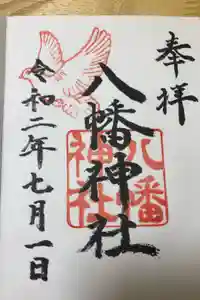 奉拝
八幡神社
八幡
神社
令和二年七月一日